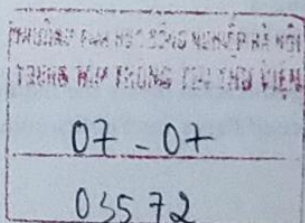 TRƯỜNG ĐẠI HỌC CÔNG NGHIỆP HÀ NỘI
TRUNG TÂM THÔNG TIN THƯ VIỆN
07-07
03572